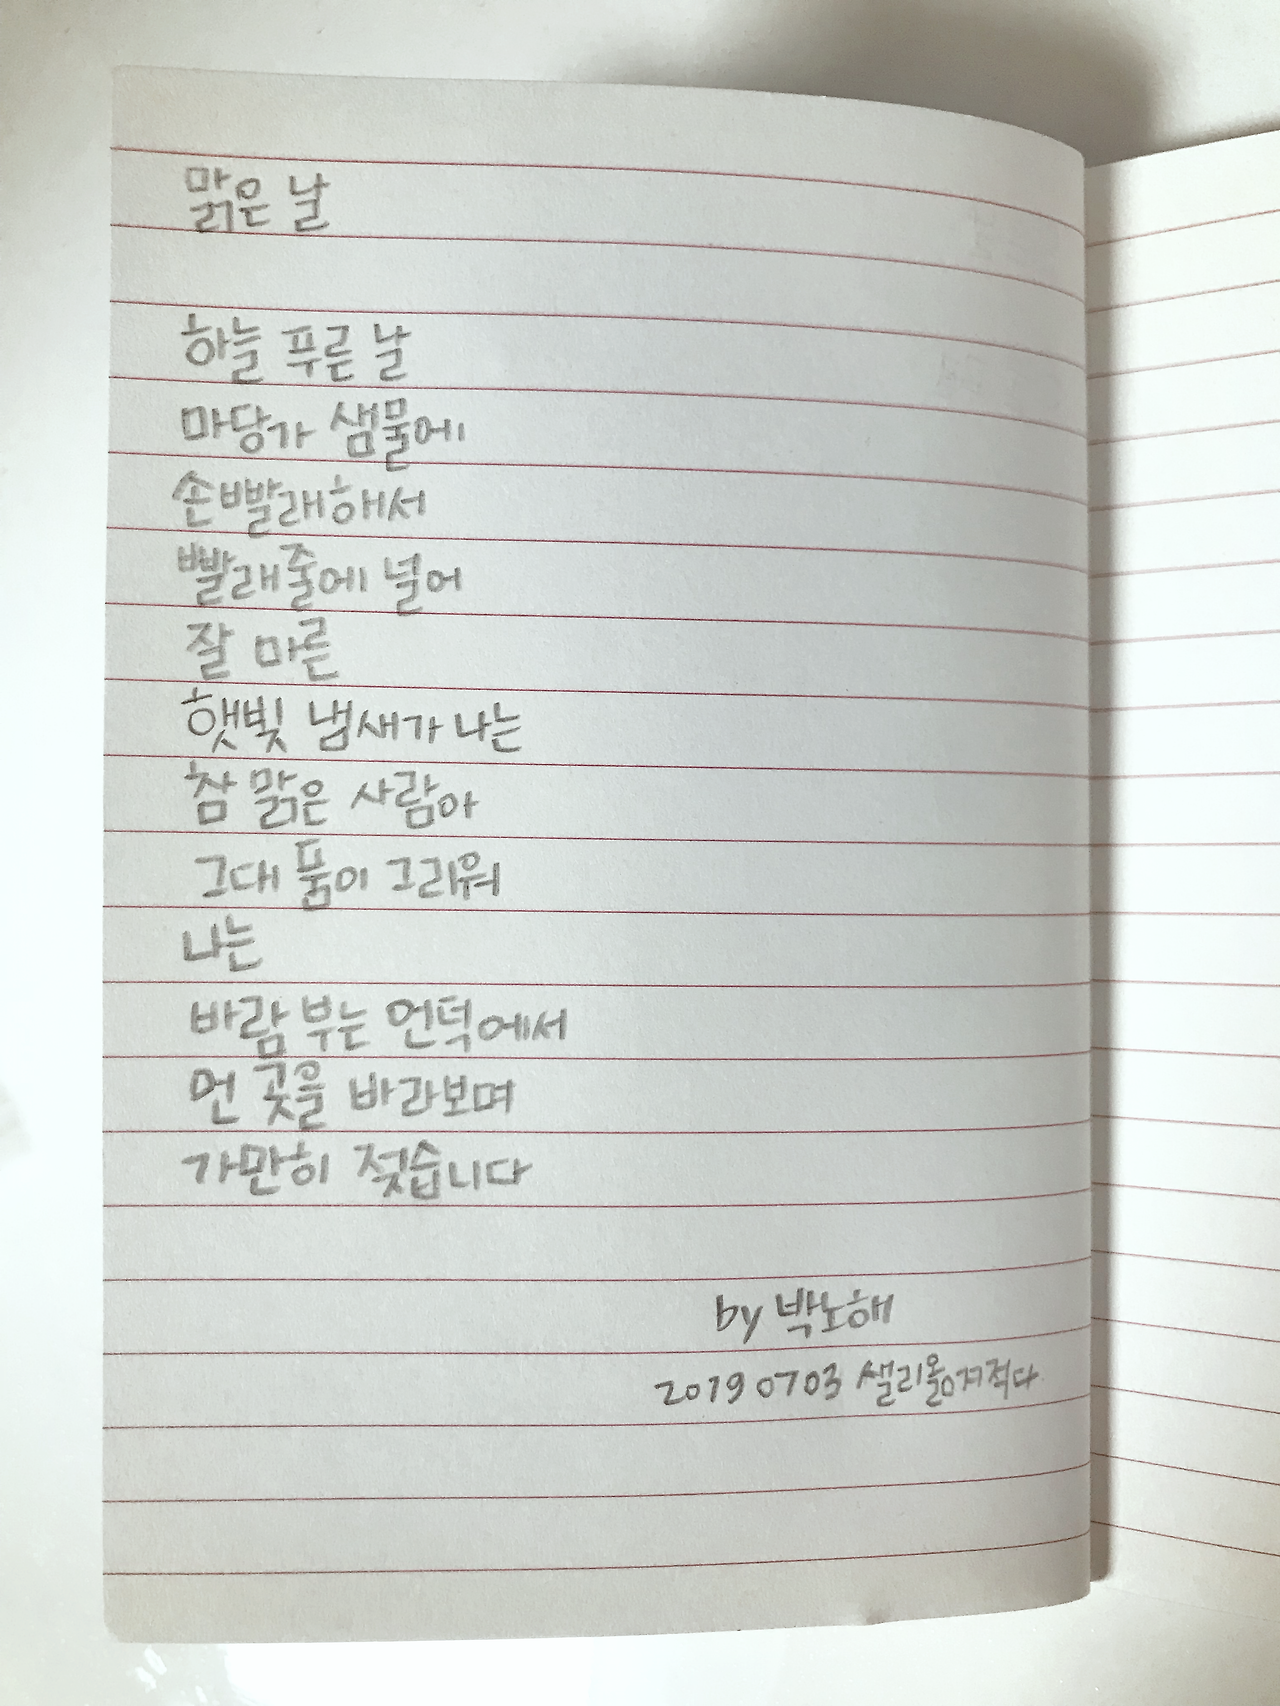 맑은 날
하늘 푸른 날
마당가 샘물에
손빨래해서
빨래줄에 널어
잘 마른
햇빛 냄새가 나는
참 맑은 사람아
그대 품이 그리워
나는
바람 부는 언덕에서
먼 곳을 바라보며
가만히 젖습니다
by 박노해
20190703 샐리옮겨적다